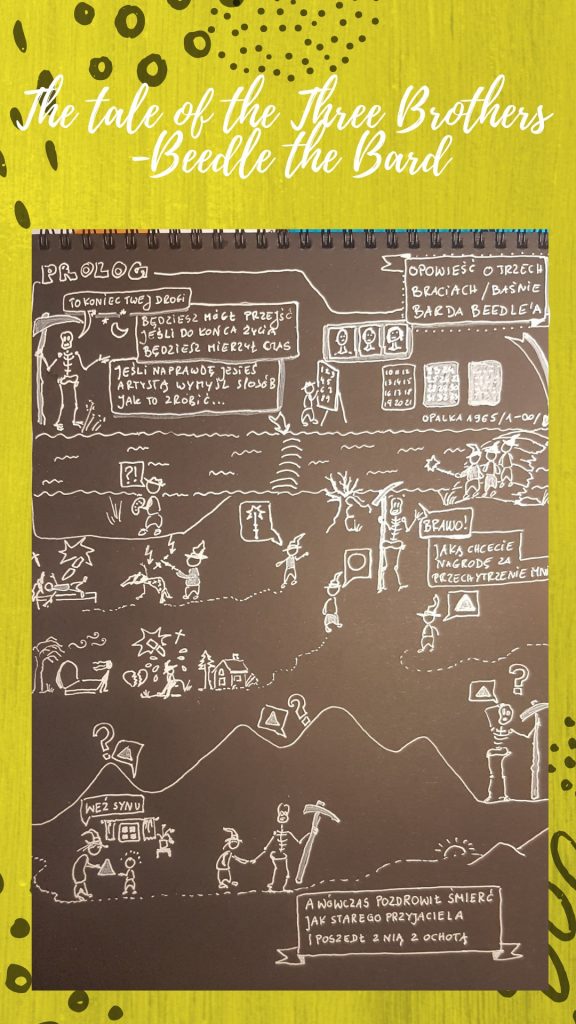 The tale of the Three Brothers
-Beedle the Bard
PROLOG
OPOWIEŚĆ O TRZECH
BRACIACH / BAŚNIE
BARDA BEEDLE'A
TO KONIEC TWEJ DROGI
BĘDZIESZ MÓGŁ PRZEJŚĆ
JEŚLI DO KOŃCA ŻYCIA
BĘDZIESZ MIERZYŁ CZAS
JEŚLI NAPRAWDĘ JESTEŚ
ARTYSTĄ WYMYŚL SPOSÓB
JAK TO ZROBIĆ...
OPALKA 1965/1-∞/
?!
BRAWO!
JAKĄ CHCECIE
NAGRODĘ ZA
PRZECHYTRZENIE MNI
?
?
?
WEŹ SYNU
A WÓWCZAS POZDROWIŁ ŚMIERĆ
JAK STAREGO PRZYJACIELA
I POSZEDŁ Z NIĄ Z OCHOTĄ